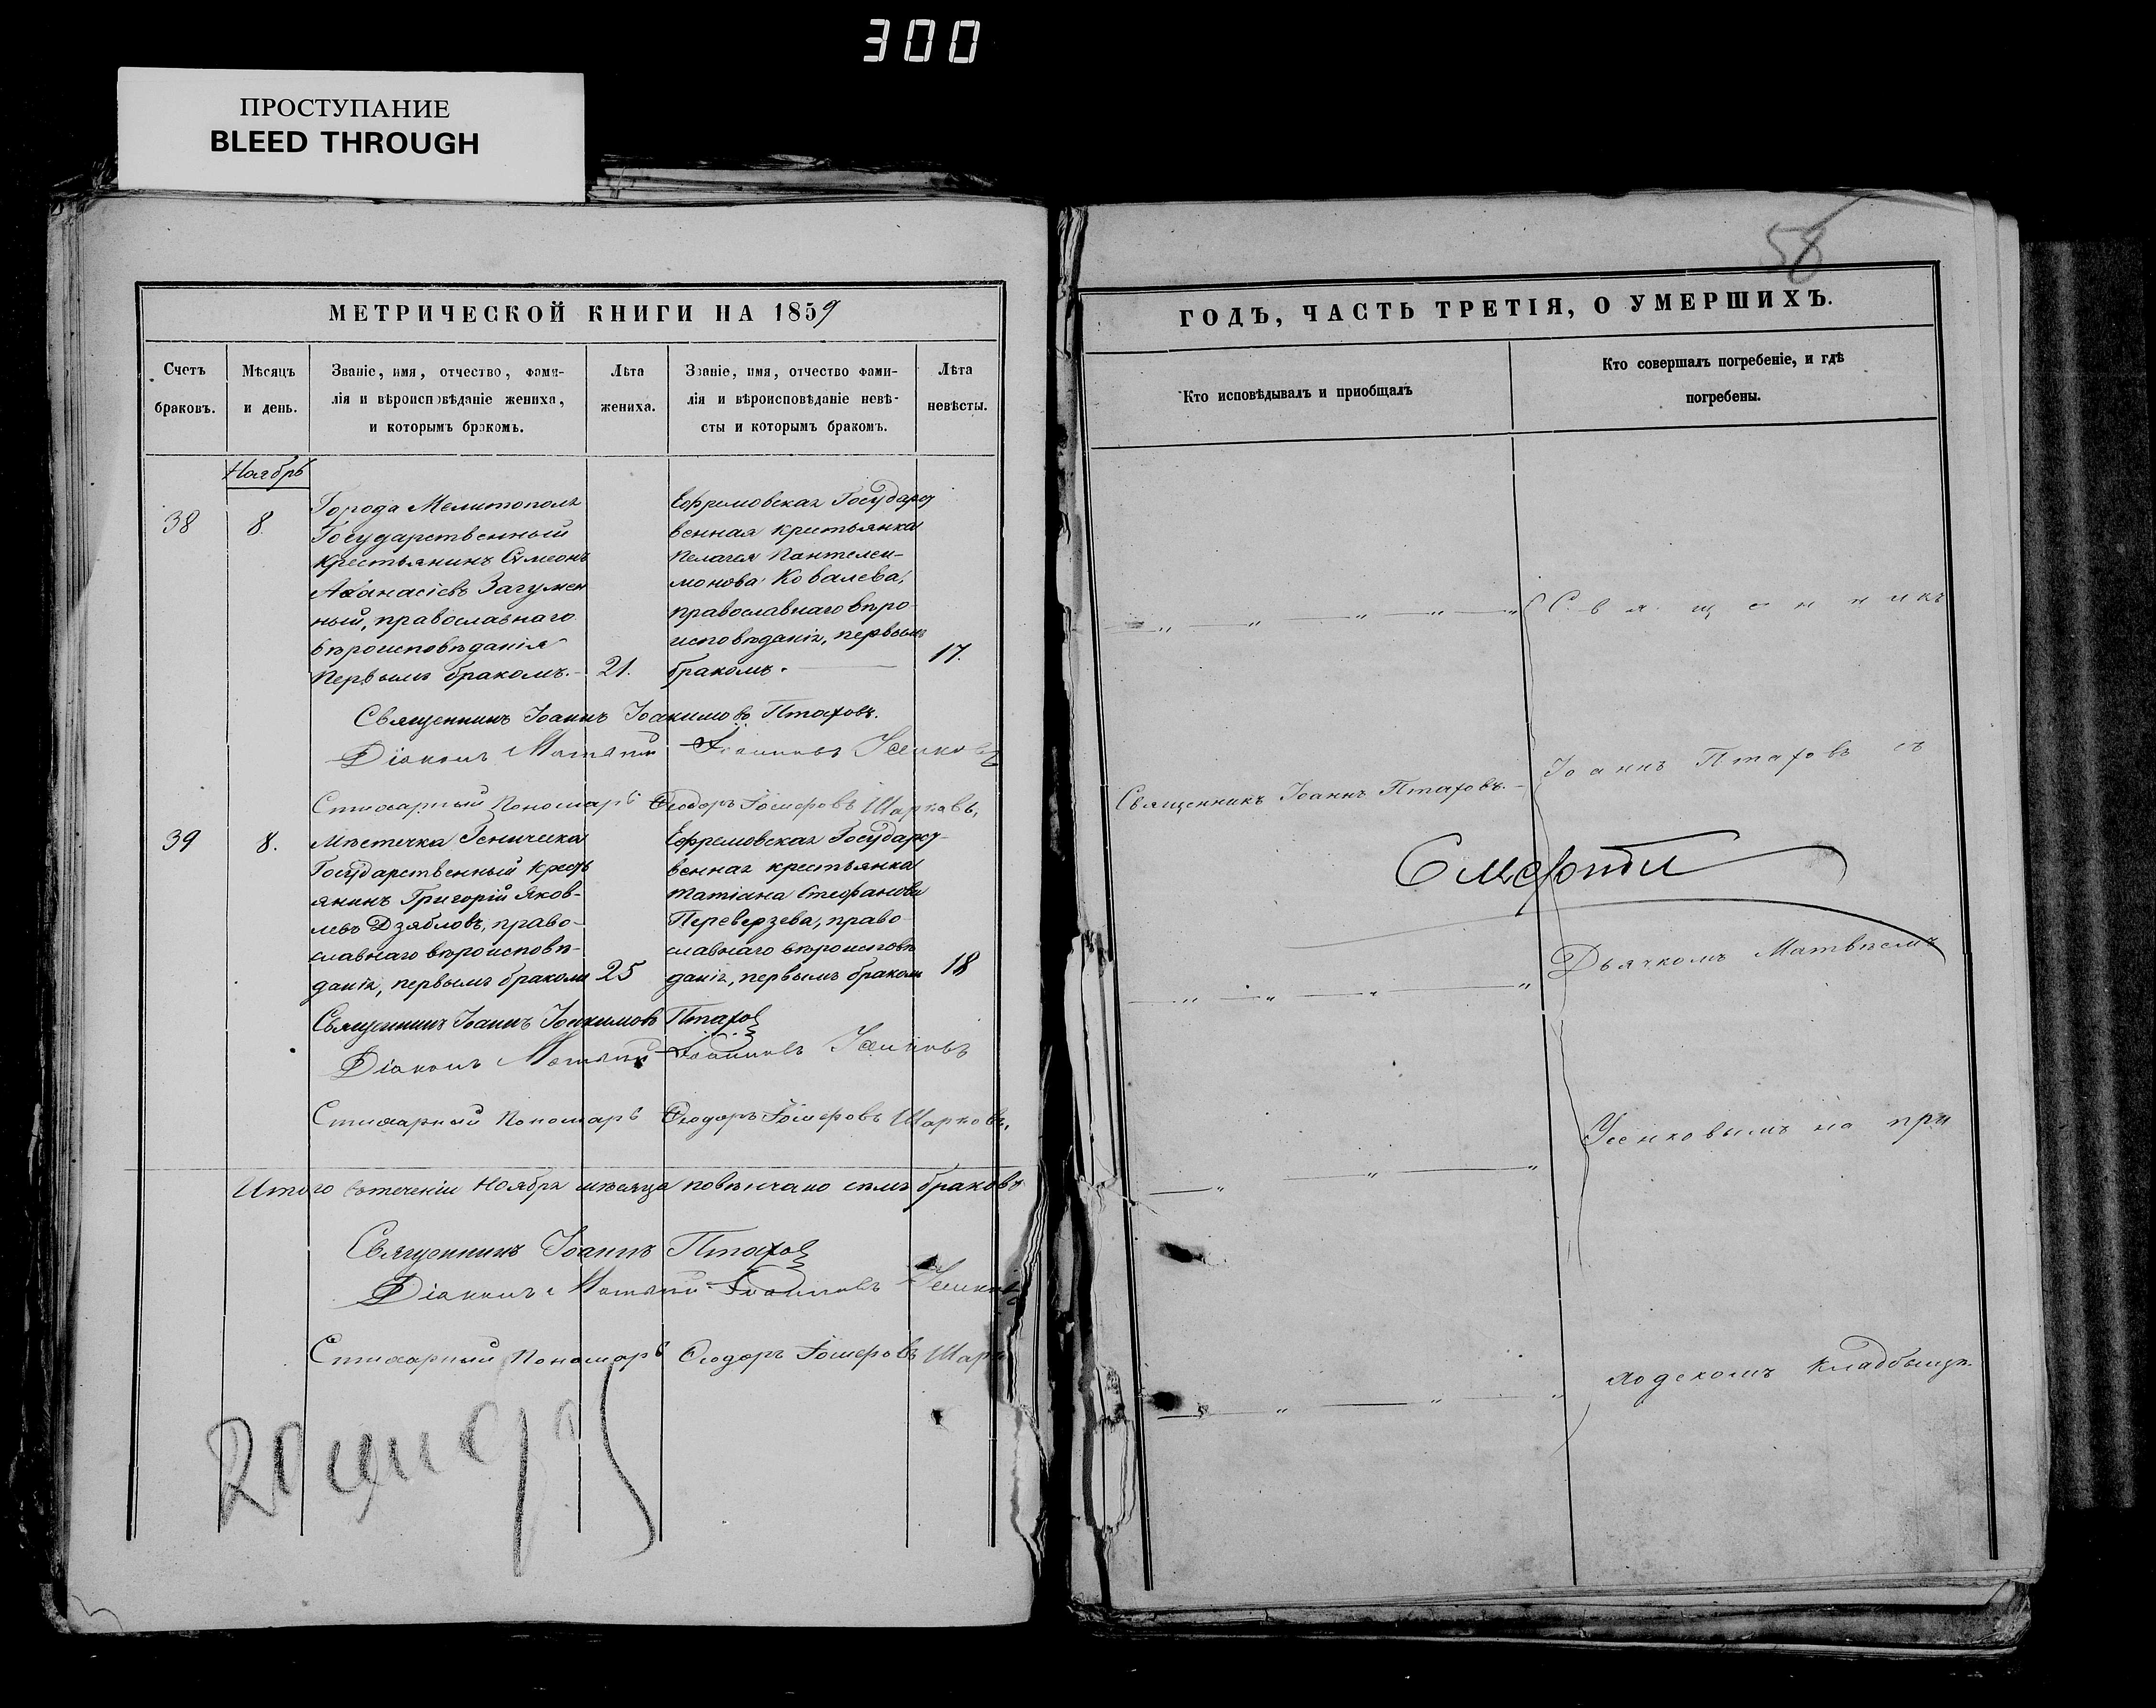 300
ПРОСТУПАНИЕ
BLEED THROUGH
МЕТРИЧЕСКОЙ КНИГИ НА 1859
Счетъ браковъ.
Мѣсяцъ и день.
Званіе, имя, отчество, фами-
лія и вѣроисповѣданіе жениха,
и которымъ бракомъ.
Лѣта жениха.
Званіе, имя, отчество фами-
лія и вѣроисповѣданіе невѣ-
сты и которымъ бракомъ.
Лѣта невѣсты.
Ноябрь
38
8
Города Мелитополя
Государственный
крестьянинъ Сѵмеонъ
Аѳанасіевъ Загумен
ный, православнаго
вѣроисповѣданія
первымъ бракомъ.
21.
Ефремовская Государст
венная крестьянка
Пелагея Пантелеи-
монова Ковалева,
православнаго вѣро-
исповѣданія, первымъ
бракомъ.
17.
Священникъ Іоаннъ Іоакимовъ Птаховъ.
Діаконъ Матѳій Іоанновъ Усенковъ
Стихарный Пономарь Ѳеодоръ Іосифовъ Шарковъ.
39
8.
Мѣстечка Геническа
Государственный крестъ
янинъ Григорій Яков-
левъ Дзябловъ, право-
славнаго вѣроисповѣ-
данія, первымъ бракомъ
25
Ефремовская Государст-
венная крестьянка
Татіана Стефанова
Переверзева, право-
славнаго вѣроисповѣ
данія, первымъ бракомъ
18
Священникъ Іоаннъ Іоакимовъ Птаховъ
Діаконъ Матѳій Іоанновъ Усенковъ
Стихарный Пономарь Ѳеодоръ Іосифовъ Шарковъ.
Итого втеченіи Ноября мѣсяца повѣнчано семь браковъ
Священникъ Іоаннъ Птаховъ
Діаконъ Матѳій Іоанновъ Усенковъ
Стихарный Пономарь Ѳеодоръ Іосифовъ Шарк
58
ГОДЪ, ЧАСТЬ ТРЕТІЯ, О УМЕРШИХЪ.
Кто исповѣдывалъ и пріобщалъ
Кто совершалъ погребеніе, и гдѣ
погребены.
Священникъ
Священникъ Іоаннъ Птаховъ.
Іоаннъ Птаховъ съ
Смерти
Дьячкомъ Матвѣемъ
Усенковымъ на при
ходскомъ кладбищѣ.